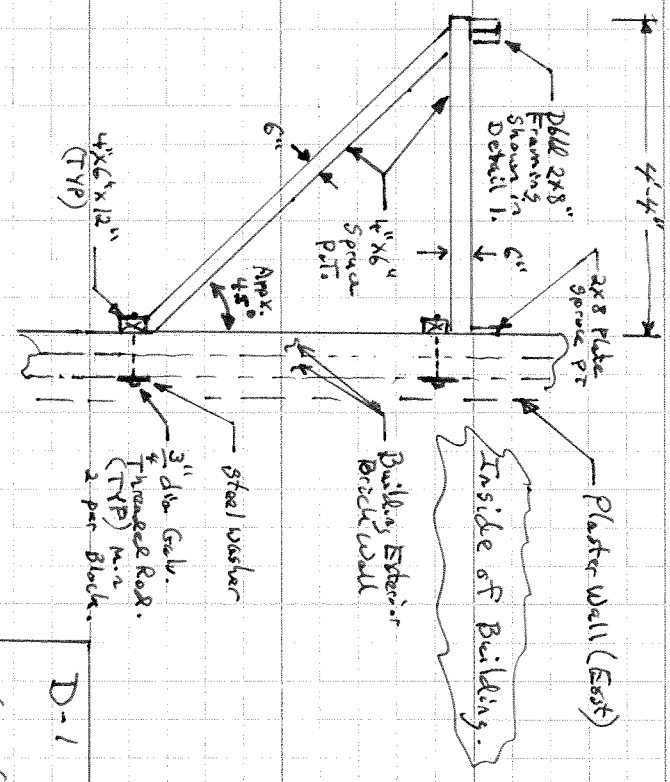 4'-4"
Dbld 2x8"
Framing
Shown in
Detail 1.
2x8 Plate
Spruce PT
6"
4"x6"
Spruce
P.T.
6"
Appx.
45°
4"x6"x12"
(TYP)
Plaster Wall (East)
Inside of Building.
Building Exterior
Brick Wall
Steel Washer
3/4" dia Galv.
Threaded Rod.
(TYP) Min
2 per Block.
D-1